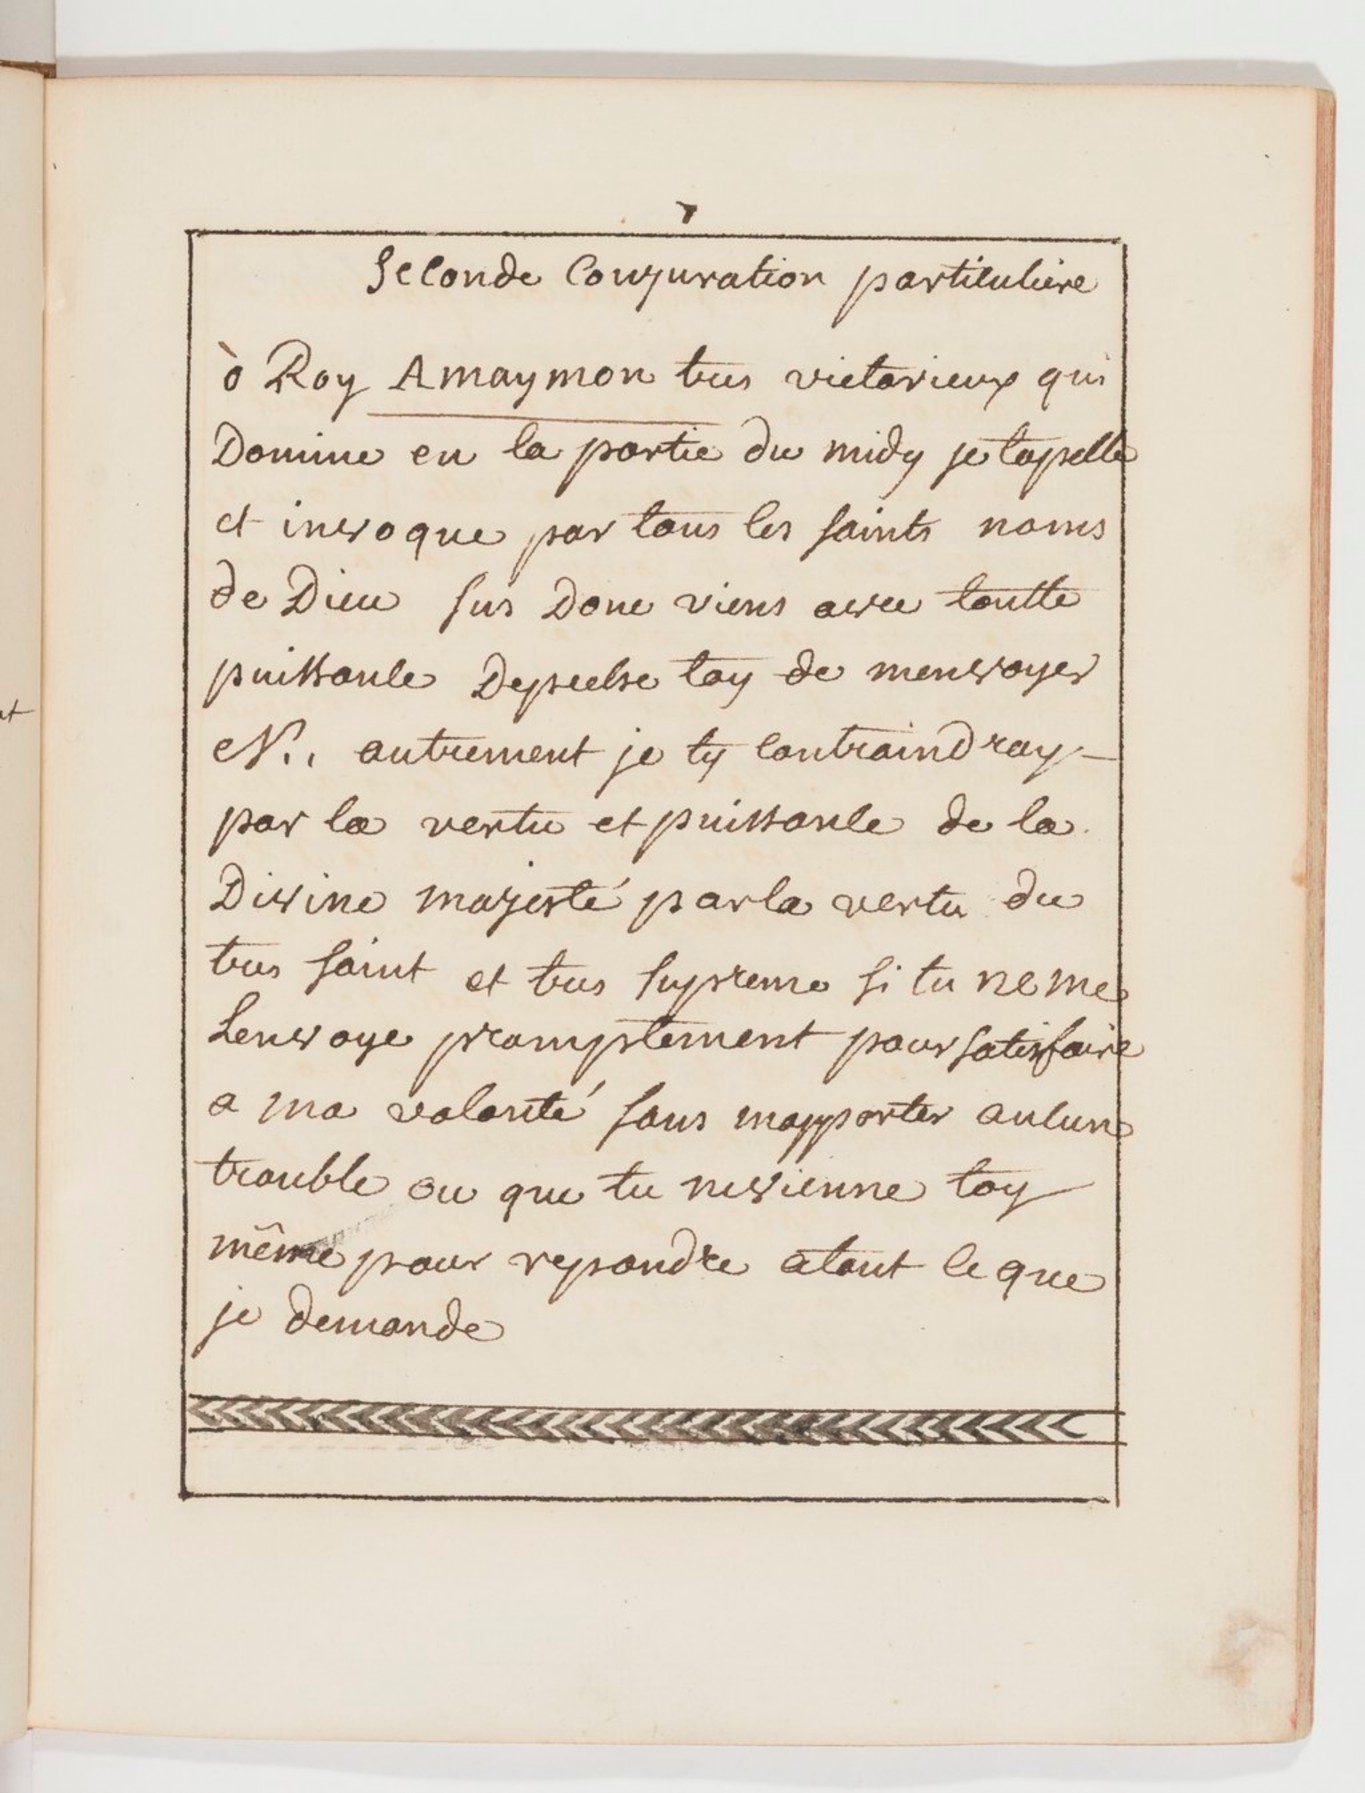 7
Seconde Conjuration particuliere
ò Roy Amaymon tres victorieux qui
Domine en la partie du midy je tapelle
et invoque par tous les saints noms
de Dieu sus Donc viens avec toutte
puissance Depeche toy de menvoyer
N., autrement je ty contraindray
par la vertu et puissance de la
Divine majesté par la vertu du
tres saint et tres supreme si tu ne me
Lenvoye promptement pour satisfaire
a ma volonté sans mapporter aucune
trouble ou que tu ne vienne toy
même pour repondre atout ce que
je demande